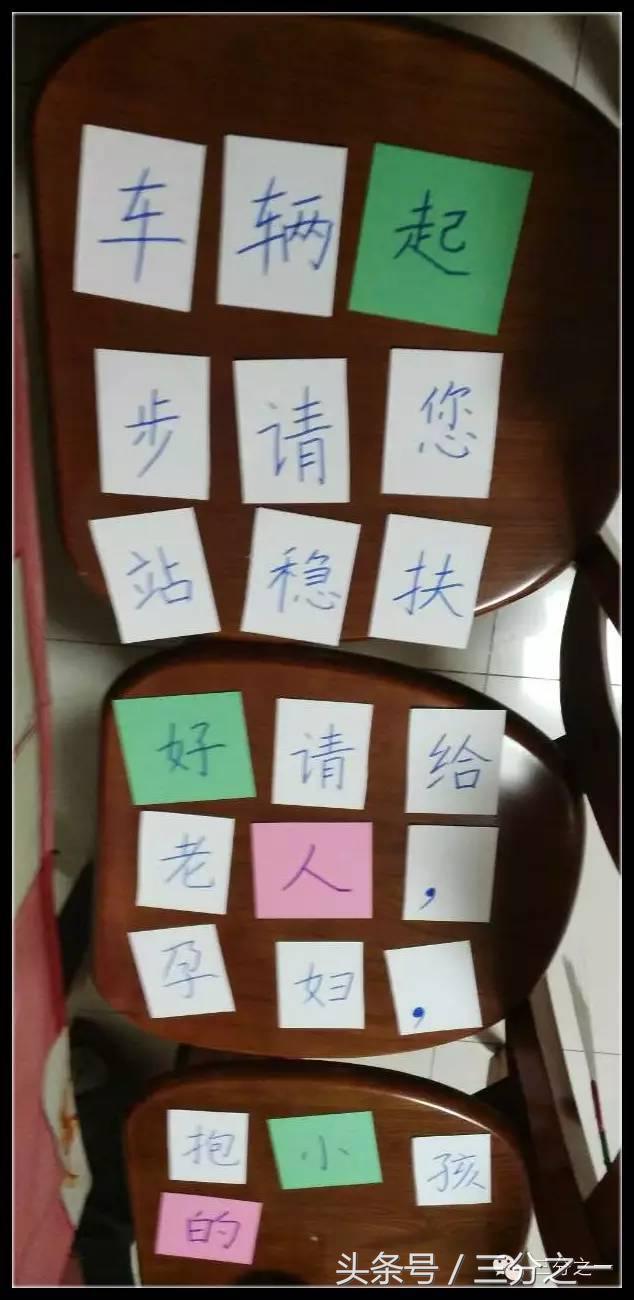 车辆起
步请您
站稳扶
好请给
老人,
孕妇,
抱小孩
的
头条号 / 三分之一